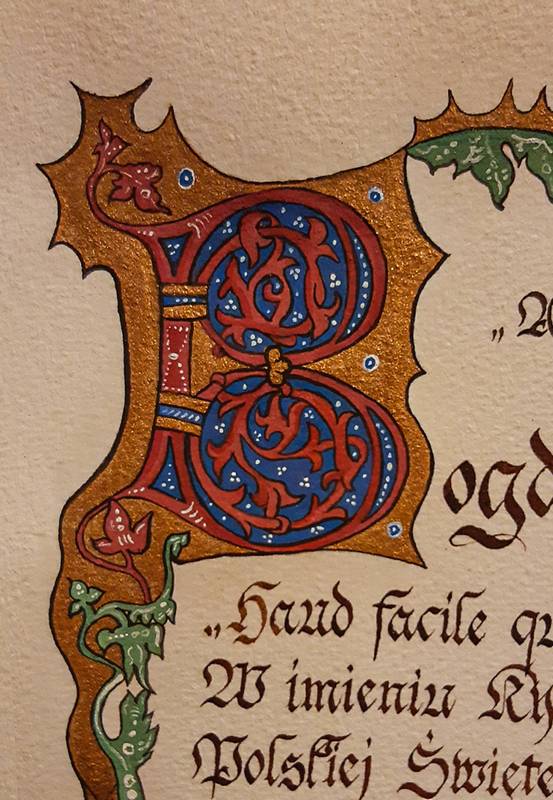 „A
Bogd
„Haud facile qu
W imieniu Ky
Polskiej Święte